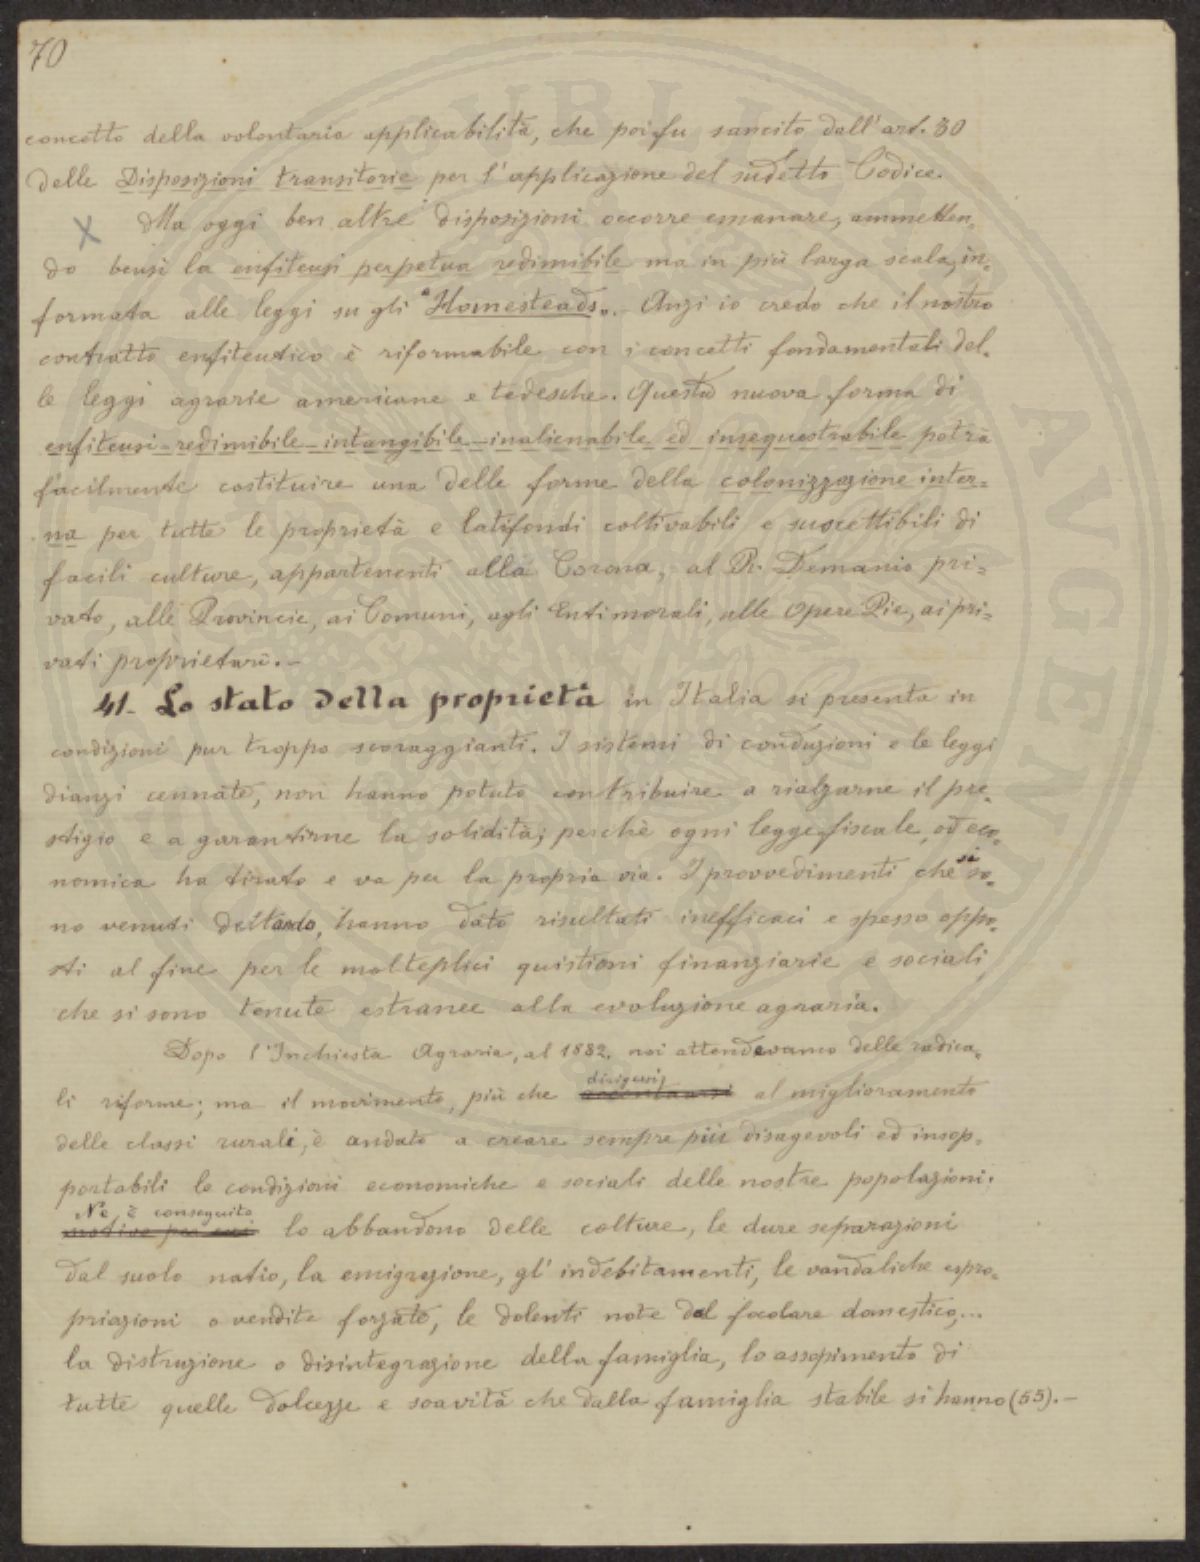 70
concetto della volontaria applicabilità, che poi fu sancito dall'art. 30
delle Disposizioni transitorie per l'applicazione del sudetto Codice.
X Ma oggi ben altre disposizioni occorre emanare, ammetten-
do bensì la enfiteusi perpetua redimibile ma in più larga scala, in-
formata alle leggi su gli "Homesteads". - Anzi io credo che il nostro
contratto enfiteutico è riformabile con i concetti fondamentali del-
le leggi agrarie americane e tedesche. Questa nuova forma di
enfiteusi-redimibile-intangibile-inalienabile ed insequestrabile potrà
facilmente costituire una delle forme della colonizzazione inter-
na per tutte le proprietà e latifondi coltivabili e suscettibili di
facili culture, appartenenti alla Corona, al R. Demanio pri-
vato, alle Provincie, ai Comuni, agli Enti morali, alle Opere Pie, ai pri-
vati proprietari. -
41- Lo stato della proprietà in Italia si presenta in
condizioni pur troppo scoraggianti. I sistemi di conduzioni e le leggi
dianzi cennate, non hanno potuto contribuire a rialzarne il pre-
stigio e a garantirne la solidità; perchè ogni legge fiscale, od eco-
nomica ha tirato e va per la propria via. I provvedimenti che si so-
no venuti dettando, hanno dato risultati inefficaci e spesso oppo-
sti al fine per le molteplici quistioni finanziarie e sociali
che si sono tenute estranee alla evoluzione agraria.
Dopo l'Inchiesta Agraria, al 1882. noi attendevamo delle radica-
li riforme; ma il movimento, più che dirigersi al miglioramento
delle classi rurali, è andato a creare sempre più disagevoli ed insop-
portabili le condizioni economiche e sociali delle nostre popolazioni.
Ne è conseguito
motivo per cui lo abbandono delle colture, le dure separazioni
dal suolo natio, la emigrazione, gl'indebitamenti, le vandaliche espro-
priazioni o vendite forzate, le dolenti note del focolare domestico,...
la distruzione o disintegrazione della famiglia, lo assopimento di
tutte quelle dolcezze e soavità che dalla famiglia stabile si hanno (55). -